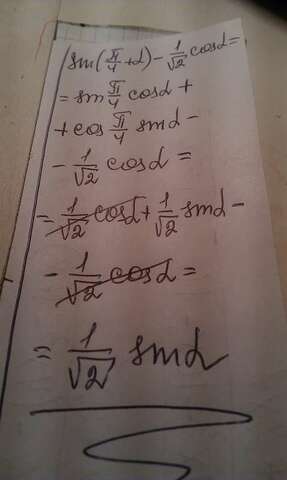 sin(π/4+α)-1/√2 cosα=
=sin π/4 cosα+
+cos π/4 sinα-
-1/√2 cosα=
=1/√2 cosα+1/√2 sinα-
-1/√2 cosα=
=1/√2 sinα